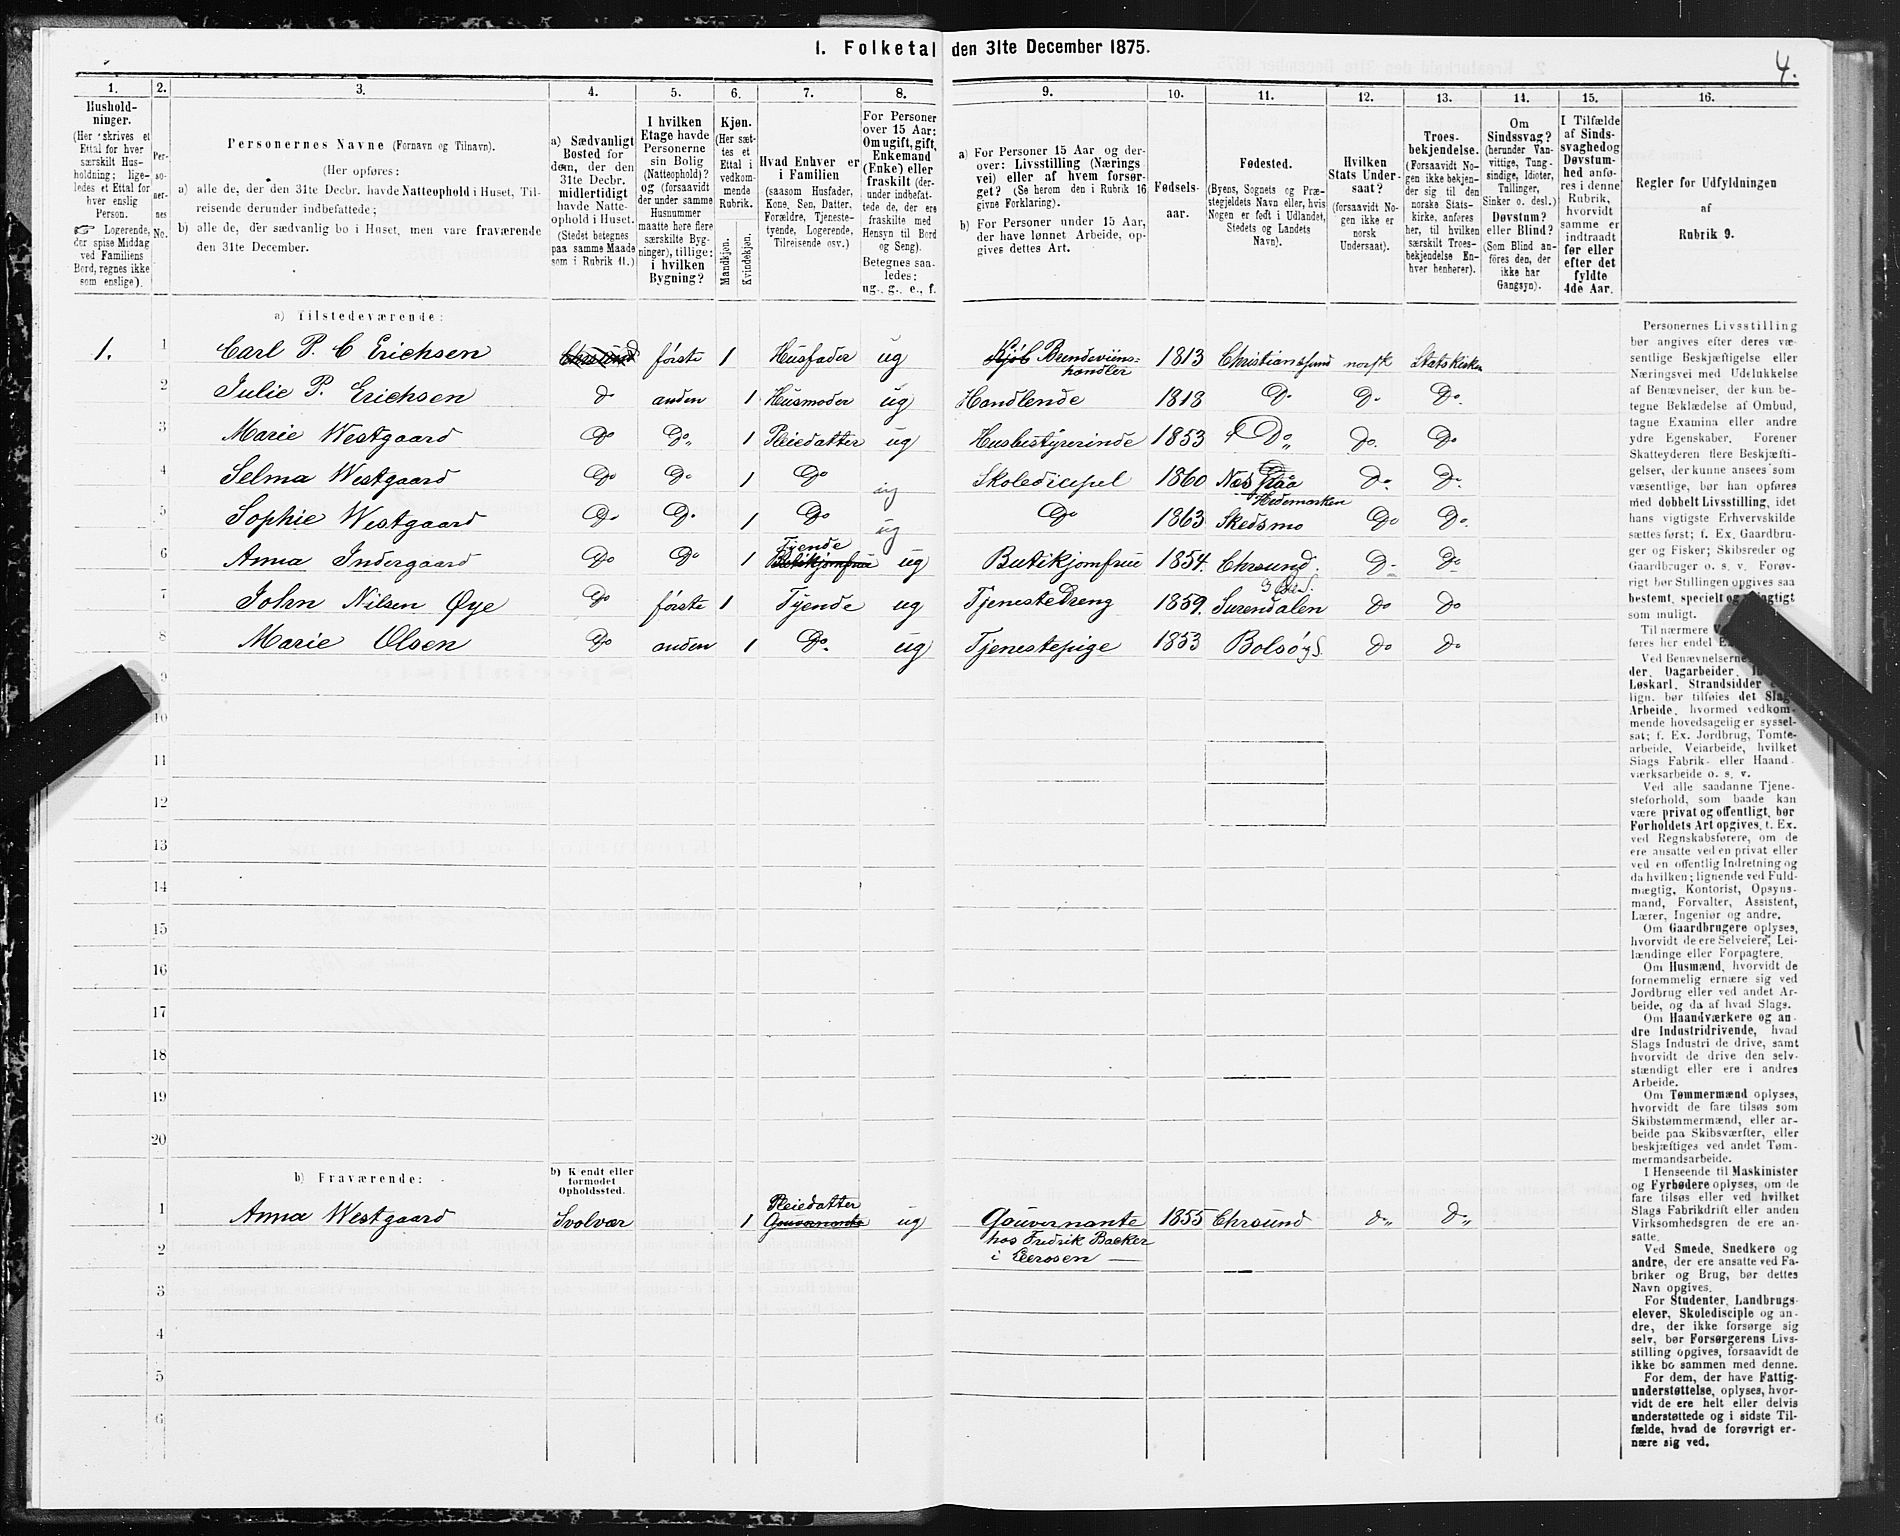 I. Folketal den 31te December 1875.
4.
1. 2. 3. 4. 5. 6. 7. 8. 9. 10. 11. 12. 13. 14. 15. 16.
Hushold-
ninger.
(Her skrives et
Ettal for hver
særskilt Hus-
holdning; lige-
ledes et Ettal for
hver enslig
Person.
☞ Logerende,
der spise Middag
ved Familiens
Bord, regnes ikke
som enslige).
Per-
so-
ner-
nes
No.
Personernes Navne (Fornavn og Tilnavn).
(Her opføres:
a) alle de, der den 31te Decbr. havde Natteophold i Huset, Til-
reisende derunder indbefattede;
b) alle de, der sædvanlig bo i Huset, men vare fraværende
den 31te December.
a) Sædvanligt
Bosted for
dem, der den
31te Decbr.
midlertidigt
havde Natte-
ophold i Huset.
(Stedet betegnes
paa samme Maade
som i Rubrik 11.)
I hvilken
Etage havde
Personerne
sin Bolig
(Natteophold)?
og (forsaavidt
der under samme
Husnummer
maatte høre flere
særskilte Byg-
ninger), tillige:
i hvilken
Bygning?
Kjøn.
(Her sæt-
tes et
Ettal i
vedkom-
mende
Rubrik.
Mandkjøn.
Kvindekjøn.
Hvad Enhver er
i Familien
(saasom Husfader,
Kone, Søn, Datter,
Forældre, Tjeneste-
tyende, Logerende,
Tilreisende osv.)
For Personer
over 15 Aar:
Om ugift, gift,
Enkemand
(Enke) eller
fraskilt (der-
under indbefat-
tede de, der ere
fraskilte med
Hensyn til Bord
og Seng).
Betegnes saa-
ledes:
ug., g., e., f.
a) For Personer 15 Aar og der-
over: Livsstilling (Nærings
vei) eller af hvem forsør-
get? (Se herom den i Rubrik 16
givne Forklaring).
b) For Personer under 15 Aar,
der have lønnet Arbeide, op-
gives dettes Art.
Fødsels-
aar.
Fødested.
(Byens, Sognets og Præ-
stegjeldets Navn eller, hvis
Nogen er født i Udlandet,
Stedets og Landets
Navn).
Hvilken
Stats Under-
saat?
(forsaavidt No-
gen ikke er
norsk
Undersaat).
Troes-
bekjendelse.
(Forsaavidt No-
gen ikke bekjen-
der sig til den
norske Stats-
kirke, anføres
her, til hvilken
særskilt Troes-
bekjendelse En-
hver henhører).
Om
Sindssvag?
(herunder Van-
vittige, Tung-
sindige, Idioter,
Tullinger,
Sinker o. desl.)
Døvstum?
eller Blind?
(Som Blind an-
føres den, der
ikke har
Gangsyn).
I Tilfælde
af Sinds-
svaghedog
Døvstum-
hed anfø-
res i denne
Rubrik,
hvorvidt
samme er
indtraadt
før eller
efter det
fyldte
4de Aar.
Regler for Udfyldningen
af
Rubrik 9.
a) Tilstedeværende:
1. 1 Carl P. C Erichsen Chrsund første 1 Husfader ug Kjøb Brændeviins-handler 1813 Christianssund norsk Statskirken
2 Julie P. Erichsen Do anden 1 Husmoder ug Handlende 1818 Do Do Do.
3 Marie Westgaard Do Do 1 Pleiedatter ug Husbestyrerinde 1853 Do Do. Do
4 Selma Westgaard Do Do 1 Do ug Skoledicepel 1860 Næs Hedemarken Do Do
5 Sophie Westgaard Do Do 1 Do ug Do 1863 Skedsmo Do Do.
6 Anna Indergaard Do Do 1 Tyende Butikjomfrue ug Butikjomfrue 1854. Chrsund. Do Do
7 John Nilsen Øye Do første 1 Tyende ug Tjenestedreng 1859. Surendalen Do Do
8 Marie Olsen Do anden 1 Do. ug Tjenestepige 1853 Bolsø S. Do Do
9
10
11
12
13
14
15
16
17
18
19
20
b) Fraværende:
b) Kendt eller
formodet
Opholdssted.
1 Anna Westgaard Svolvær 1 Pleiedatter Gouvernante ug Gouvernante 1855 Chrsund Do Do
hos Fredrik Backer
2
i Lerosen
3
4
5
6
Personernes Livsstilling
bør angives efter deres væ-
sentlige Beskjæftigelse eller
Næringsvei med Udelukkelse
af Benævnelser, der kun be-
tegne Beklædelse af Ombud,
tagne Examina eller andre
ydre Egenskaber. Forener
Skatteyderen flere Beskjæfti-
gelser, der kunne ansees som
væsentlige, bør han opføres
med dobbelt Livsstilling, idet
hans vigtigste Erhvervskilde
sættes først; f. Ex. Gaardbru-
ger og Fisker; Skibsreder og
Gaardbruger o. s. v. Forøv-
rigt bør Stillingen opgives saa
bestemt, specielt og
som muligt.
Til nærmere
føres her endel
Ved Benævnelserne
der, Dagarbeider,
Løskarl, Strandsidder
lign. bør tilføies det Slags
Arbeide, hvormed vedkom-
mende hovedsagelig er syssel-
sat; f. Ex. Jordbrug, Tomte-
arbeide, Veiarbeide, hvilket
Slags Fabrik- eller Haand
værksarbeide o. s. v.
Ved alle saadanne Tjene-
steforhold, som baade kan
være privat og offentligt, bør
Forholdets Art opgives, t. Ex.
ved Regnskabsførere, om de
ere ansatte ved en privat eller
ved en offentlig Indretning og
da hvilken; lignende ved Fuld-
mægtig, Kontorist, Opsyns-
mand, Forvalter, Assistent,
Lærer, Ingeniør og andre.
Om Gaardbrugere oplyses,
hvorvidt de ere Selveiere, Lei-
lændinge eller Forpagtere.
Om Husmænd, hvorvidt de
fornemmelig ernære sig ved
Jordbrug eller ved andet Ar-
beide, og da af hvad Slags.
Om Haandværkere og an-
dre Industridrivende, hvad
Slags Industri de drive, samt
hvorvidt de drive den selv-
stændigt eller ere i andres
Arbeide.
Om Tømmermænd oplyses,
hvorvidt de fare tilsøs som
Skibstømmermænd, eller ar-
beide paa Skibsværfter, eller
beskjæftiges ved andet Tøm-
mermandsarbeide.
I Henseende til Maskinister
og Fyrbødere oplyses, om de
fare tilsøs eller ved hvilket
Slags Fabrikdrift eller anden
Virksomhedsgren de ere an-
satte.
Ved Smede, Snedkere og
andre, der ere ansatte ved Fa-
briker og Brug, bør dettes
Navn opgives.
For Studenter, Landbrugs-
elever, Skoledisciple og an-
dre, der ikke forsørge sig
selv, bør Forsørgerens Livs-
stilling opgives, forsaavidt de
ikke bo sammen med denne.
For dem, der have Fattig-
understøttelse, oplyses, hvor-
vidt de ere helt eller delvis
understøttede og i sidste Til-
fælde, hvad de forøvrigt er-
nære sig ved.